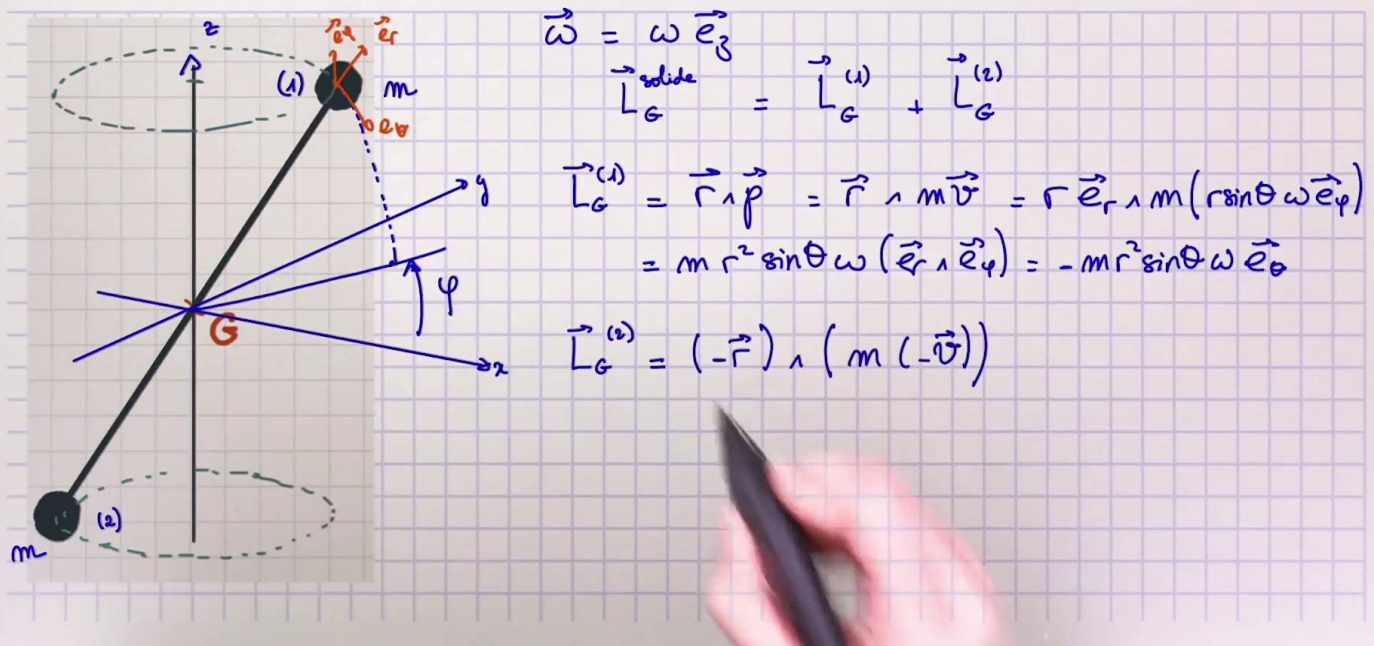 z
e⃗φ e⃗r
(1) m
eθ
y
φ
G
x
(2)
m
ω⃗ = ω e⃗z
L⃗G^solide = L⃗G^(1) + L⃗G^(2)
L⃗G^(1) = r⃗ ∧ p⃗ = r⃗ ∧ m v⃗ = r e⃗r ∧ m(r sinθ ω e⃗φ)
= m r² sinθ ω (e⃗r ∧ e⃗φ) = - m r² sinθ ω e⃗θ
L⃗G^(2) = (-r⃗) ∧ (m (-v⃗))